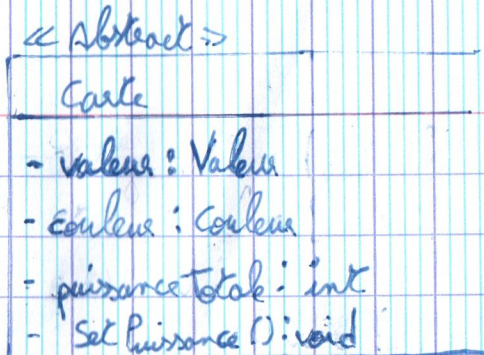 << Abstract >>
Carte
- valeur : Valeur
- couleur : Couleur
- puissanceTotale : int
- SetPuissance () : void